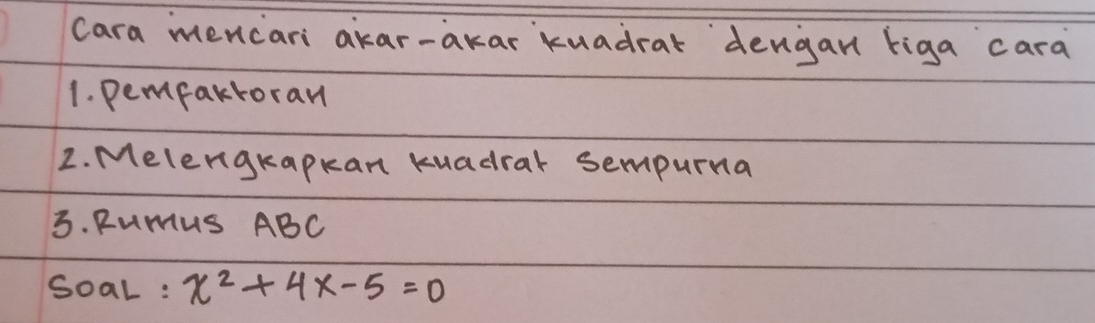 Cara mencari akar-akar kuadrat dengan tiga cara
1. Pemfaktoran
2. Melengkapkan kuadrat sempurna
3. Rumus ABC
Soal : x² + 4x - 5 = 0